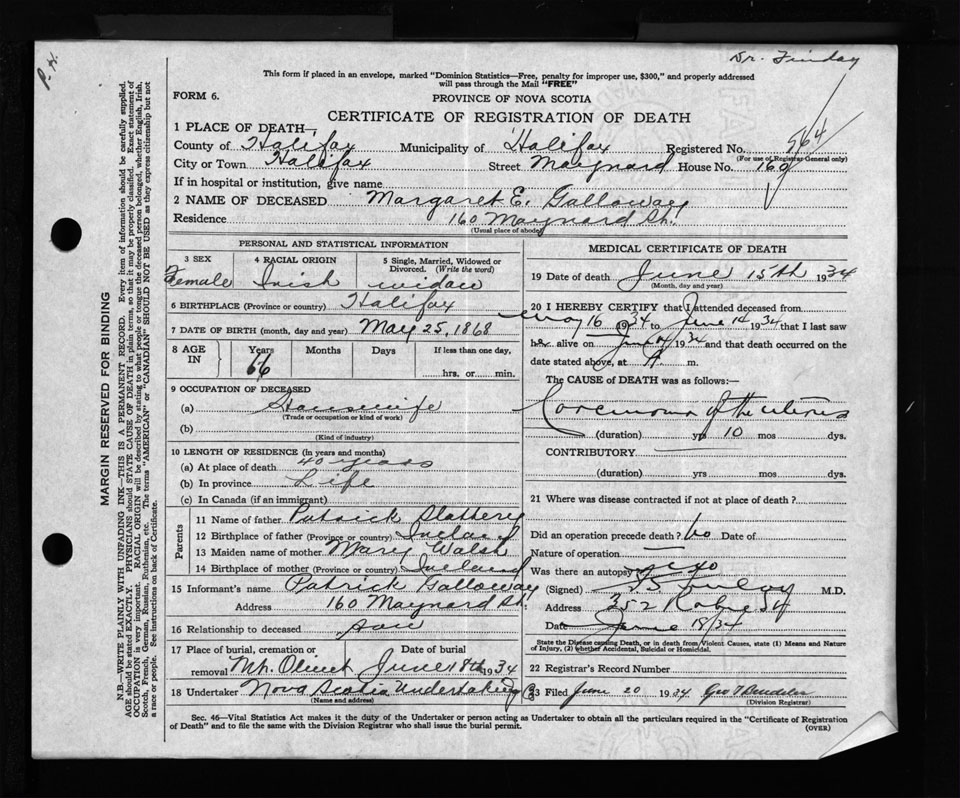 Dr. Finday
P. H.
This form if placed in an envelope, marked "Dominion Statistics—Free, penalty for improper use, $300," and properly addressed
will pass through the Mail "FREE"
FORM 6.
PROVINCE OF NOVA SCOTIA
CERTIFICATE OF REGISTRATION OF DEATH
1 PLACE OF DEATH—
County of Halifax Municipality of Halifax Registered No. 564
(For use of Registrar General only)
City or Town Halifax Street Maynard House No. 160
If in hospital or institution, give name
2 NAME OF DECEASED Margaret E. Galloway
Residence 160 Maynard St.
(Usual place of abode)
MARGIN RESERVED FOR BINDING
N.B.—WRITE PLAINLY WITH UNFADING INK—THIS IS A PERMANENT RECORD. Every item of information should be carefully supplied.
AGE should be stated EXACTLY. PHYSICIANS should STATE CAUSE OF DEATH in plain terms, so that it may be properly classified. Exact statement of
OCCUPATION is very important. RACIAL ORIGIN will be described by stating to what people or tongue the deceased person belonged, whether English, Irish,
Scotch, French, German, Russian, Ruthenian, etc. The terms "AMERICAN" or "CANADIAN" SHOULD NOT BE USED as they express citizenship but not
a race or people. See instructions on back of Certificate.
PERSONAL AND STATISTICAL INFORMATION
3 SEX 4 RACIAL ORIGIN 5 Single, Married, Widowed or
Divorced. (Write the word)
Female Irish widow
6 BIRTHPLACE (Province or country) Halifax
7 DATE OF BIRTH (month, day and year) May 25, 1868
8 AGE IN Years Months Days If less than one day,
66 hrs. or min.
9 OCCUPATION OF DECEASED
(a) Housewife
(Trade or occupation or kind of work)
(b)
(Kind of industry)
10 LENGTH OF RESIDENCE (in years and months)
(a) At place of death 40 years
(b) In province Life
(c) In Canada (if an immigrant)
Parents
11 Name of father Patrick Slattery
12 Birthplace of father (Province or country) Ireland
13 Maiden name of mother Mary Walsh
14 Birthplace of mother (Province or country) Ireland
15 Informant's name Patrick Galloway
Address 160 Maynard St.
16 Relationship to deceased son
17 Place of burial, cremation or Date of burial
removal Mt. Olivet June 18th 1934
18 Undertaker Nova Scotia Undertaking Co
(Name and address)
MEDICAL CERTIFICATE OF DEATH
19 Date of death June 15th 1934
(Month, day and year)
20 I HEREBY CERTIFY that I attended deceased from
May 16 1934 to June 14 1934 that I last saw
her alive on June 14 1934 and that death occurred on the
date stated above, at A. m.
The CAUSE OF DEATH was as follows:—
Carcinoma of the uterus
(duration) yrs 10 mos dys.
CONTRIBUTORY
(duration) yrs mos dys.
21 Where was disease contracted if not at place of death?
Did an operation precede death? No Date of
Nature of operation
Was there an autopsy? No
(Signed) M.D.
Address 352 Robie St
Date June 18/34
State the Disease causing Death, or in death from Violent Causes, state (1) Means and Nature
of Injury, (2) whether Accidental, Suicidal or Homicidal.
22 Registrar's Record Number
23 Filed June 20 1934 Geo
(Division Registrar)
Sec. 46—Vital Statistics Act makes it the duty of the Undertaker or person acting as Undertaker to obtain all the particulars required in the "Certificate of Registration
of Death" and to file the same with the Division Registrar who shall issue the burial permit.
(OVER)